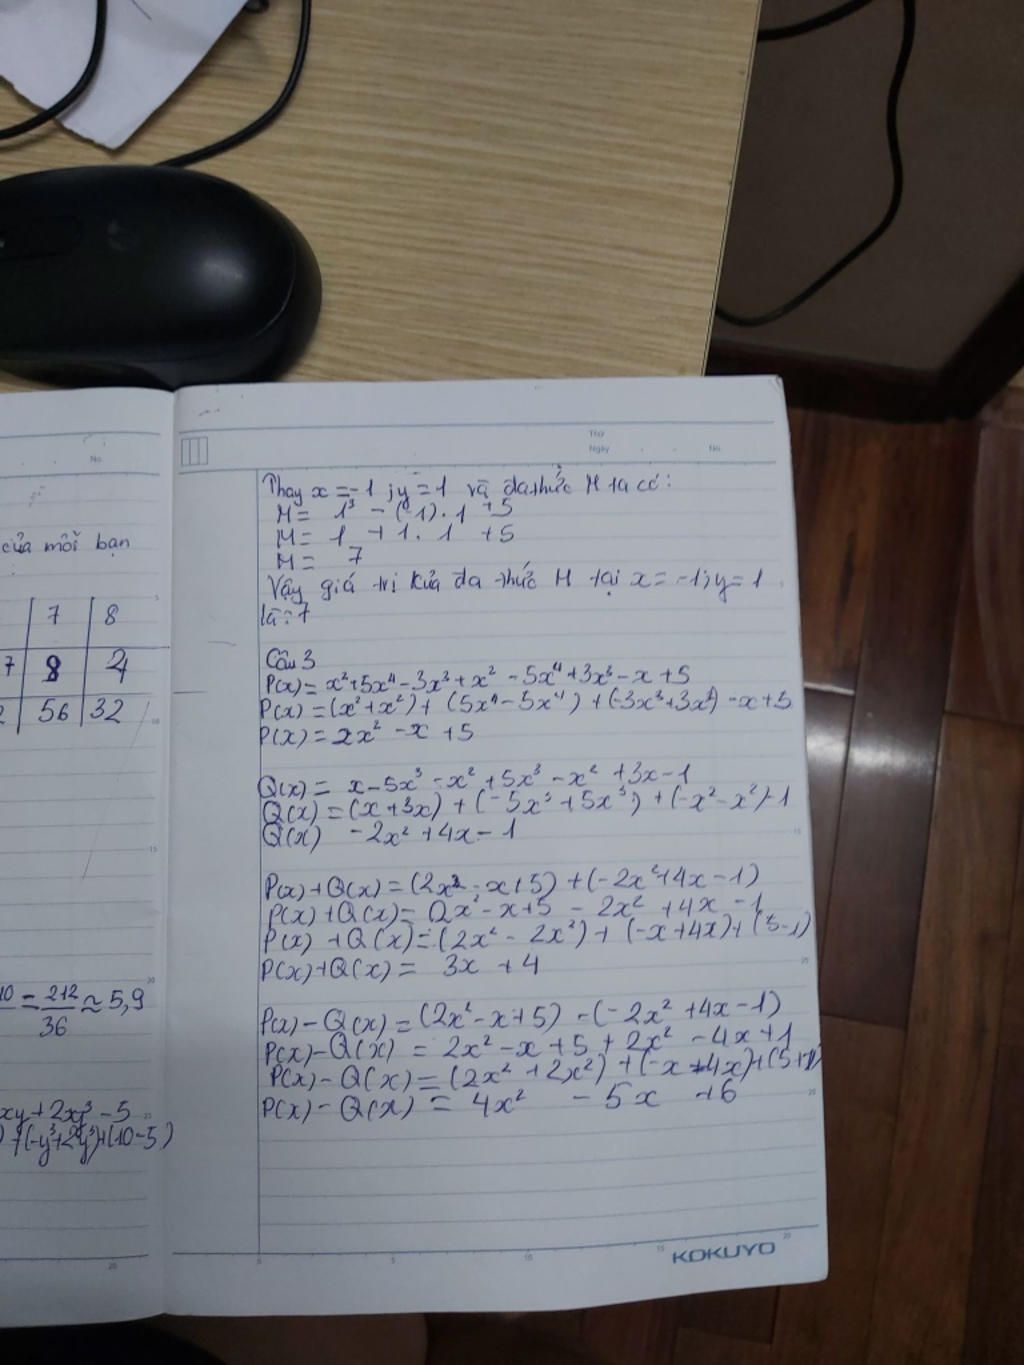 No.
của mỗi bạn
7 8
7 8 4
2 56 32
10 = 212/36 ≈ 5,9
xy + 2xy³ - 5
) + (-y³+2y³)+(10-5)
Thứ
Ngày No.
Thay x = -1 ; y = 1 và đa thức M ta có:
M = 1³ - (-1).1 + 5
M = 1 + 1. 1 + 5
M = 7
Vậy giá trị kủa đa thức M tại x = -1; y = 1
là: 7
Câu 3
P(x) = x² + 5x⁴ - 3x³ + x² - 5x⁴ + 3x³ - x + 5
P(x) = (x² + x²) + (5x⁴ - 5x⁴) + (-3x³ + 3x³) - x + 5
P(x) = 2x² - x + 5
Q(x) = x - 5x³ - x² + 5x³ - x² + 3x - 1
Q(x) = (x + 3x) + (-5x³ + 5x³) + (-x² - x²) - 1
Q(x) - 2x² + 4x - 1
P(x) + Q(x) = (2x² - x + 5) + (-2x² + 4x - 1)
P(x) + Q(x) = 2x² - x + 5 - 2x² + 4x - 1
P(x) + Q(x) = (2x² - 2x²) + (-x + 4x) + (5 - 1)
P(x) + Q(x) = 3x + 4
P(x) - Q(x) = (2x² - x + 5) - (-2x² + 4x - 1)
P(x) - Q(x) = 2x² - x + 5 + 2x² - 4x + 1
P(x) - Q(x) = (2x² + 2x²) + (-x - 4x) + (5 + 1)
P(x) - Q(x) = 4x² - 5x + 6
KOKUYO